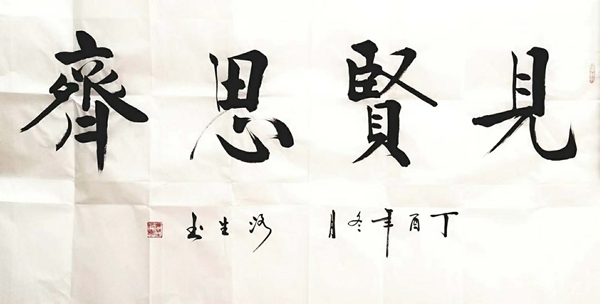 見賢思齊
丁酉年冬月 洛生